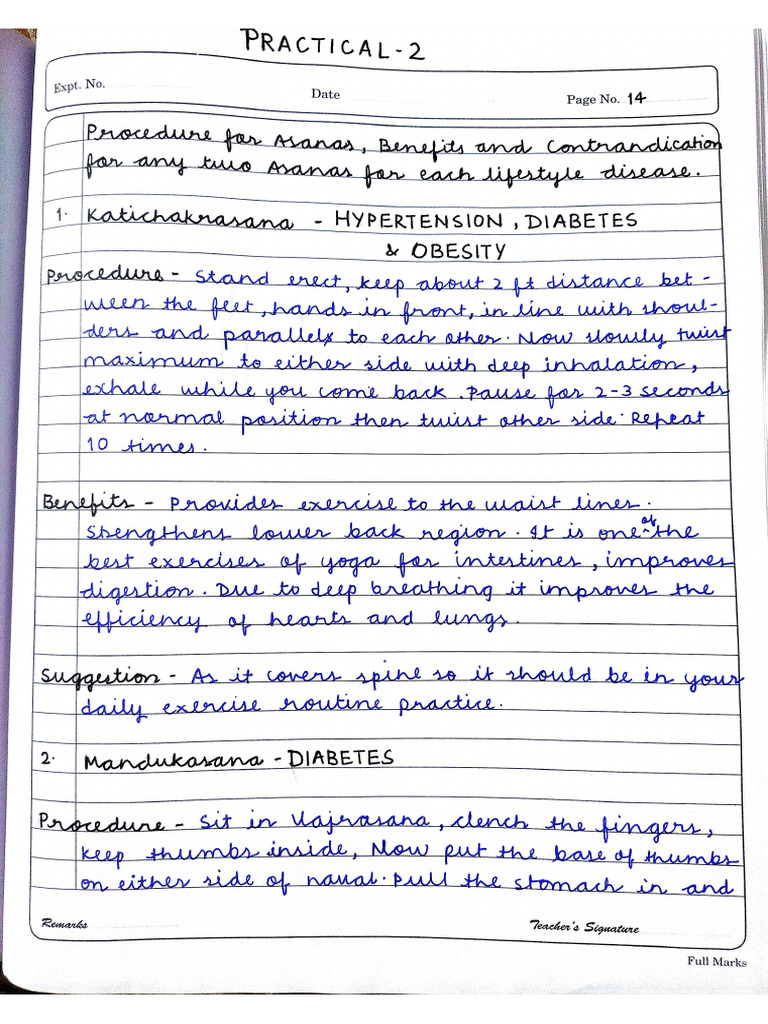 PRACTICAL-2
Expt. No.
Date
Page No. 14
Procedure for Asanas, Benefits and Contrandication
for any two Asanas for each lifestyle disease.
1. Katichakrasana - HYPERTENSION, DIABETES
& OBESITY
Procedure - Stand erect, keep about 2 ft distance bet-
ween the feet, hands in front, in line with shoul-
ders and parallel to each other. Now slowly twist
maximum to either side with deep inhalation,
exhale while you come back. Pause for 2-3 seconds
at normal position then twist other side. Repeat
10 times.
Benefits - Provides exercise to the waist lines.
Strengthens lower back region. It is one of the
best exercises of yoga for intestines, improves
digestion. Due to deep breathing it improves the
efficiency of hearts and lungs.
Suggestion - As it covers spine so it should be in your
daily exercise routine practice.
2. Mandukasana - DIABETES
Procedure - Sit in Vajrasana, clench the fingers,
keep thumbs inside, Now put the base of thumbs
on either side of naval. Pull the stomach in and
Remarks
Teacher's Signature
Full Marks